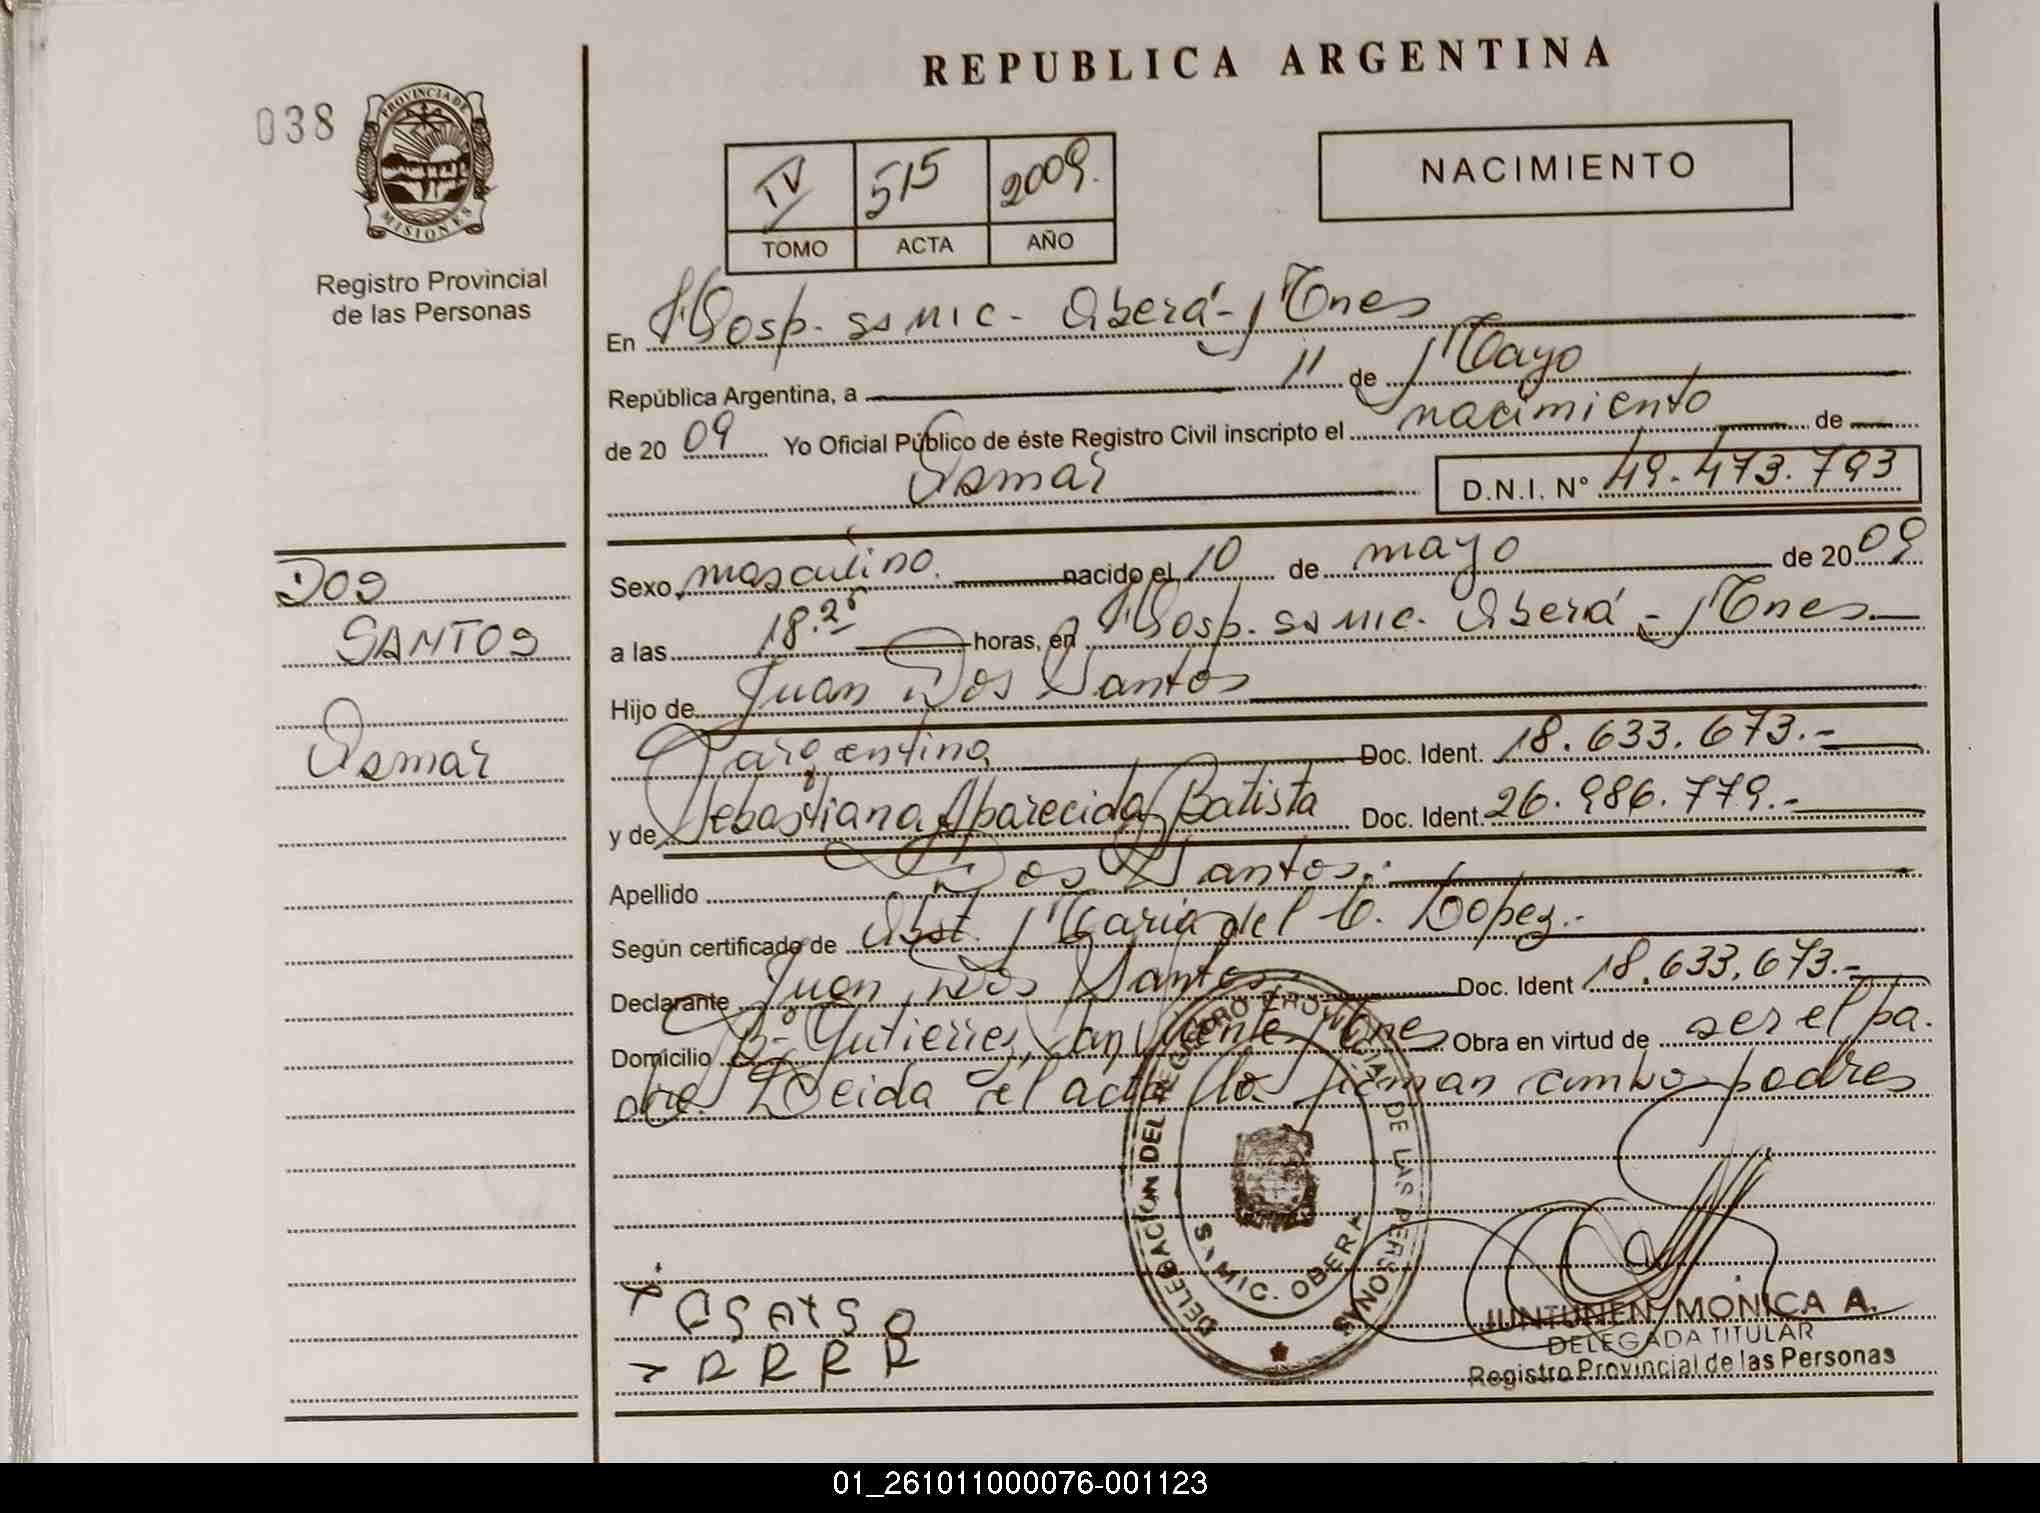 REPUBLICA ARGENTINA
038
PROVINCIA DE
MISIONES
Registro Provincial
de las Personas
IV 515 2009.
TOMO ACTA AÑO
NACIMIENTO
En Hosp. SAMIC - Oberá - Mnes
República Argentina, a 11 de Mayo
de 2009 Yo Oficial Público de éste Registro Civil inscripto el nacimiento de
Osmar D.N.I. N° 49.473.793
DOS
SANTOS
Osmar
Sexo masculino. nacido el 10 de mayo de 2009
a las 18.25 horas, en Hosp. SAMIC. Oberá - Mnes.
Hijo de Juan Dos Santos
argentino Doc. Ident. 18.633.673.-
y de Sebastiana Aparecida Batista Doc. Ident. 26.986.779.-
Apellido Dos Santos.
Según certificado de Obst. Maria del C. Lopez.-
Declarante Juan Dos Santos Doc. Ident 18.633.673.-
Domicilio B° Gutierrez, San Vicente Mnes Obra en virtud de ser el pa.
dre. Leida el acta la firman ambos padres
DELEGACION DEL REGISTRO PROVINCIAL DE LAS PERSONAS
SAMIC. OBERA
JUNTUNEN MONICA A.
DELEGADA TITULAR
Registro Provincial de las Personas
01_261011000076-001123